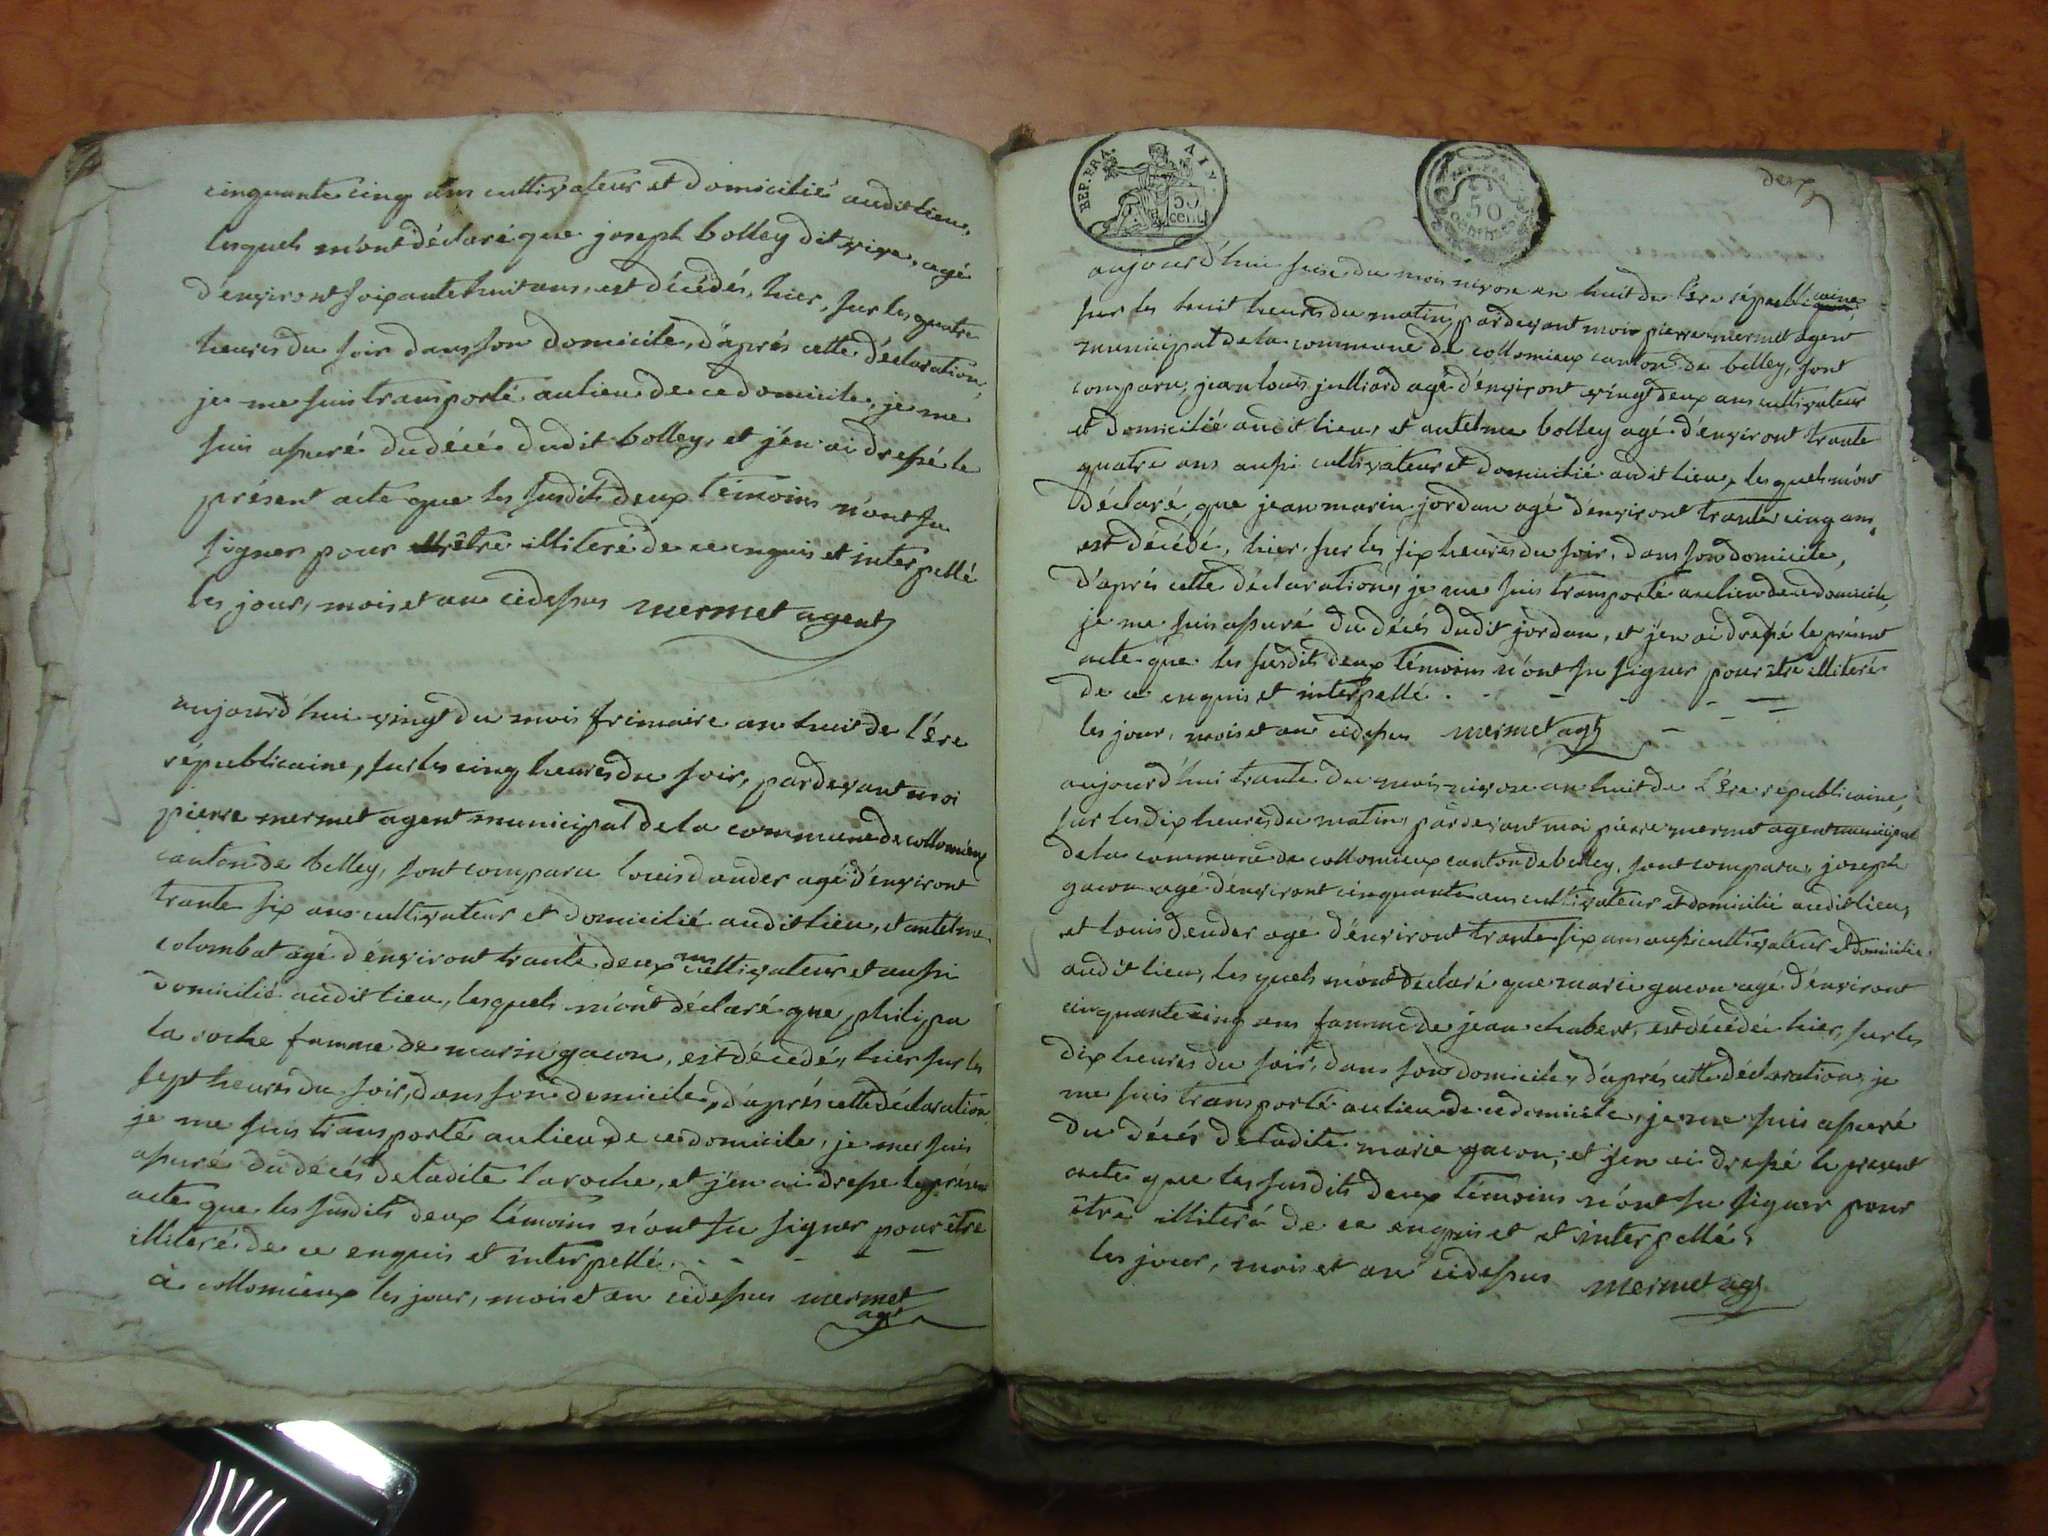 cinquante cinq ans cultivateur et domicilié audit lieu,
lesquels m'ont déclaré que joseph bolley dit vive, agé
d'environt soixante huit ans, est décédés, hier, sur les quatre
heures du soir dans son domicile, d'aprés cette déclaration,
je me suis transporté au lieu de ce domicile, je me
suis assuré du décé dudit bolley, et j'en ai dressé le
présent acte que les susdits deux témoins n'ont su
signer pour être illiteré de ce enquis et interpellé
les jour, mois et an cidessus mermet agent
aujourd'hui vingt du mois frimaire an huit de l'ère
républicaine, sur les cinq heures du soir, pardevant moi
pierre mermet agent municipal de la commune de collomieux
canton de belley, sont comparu louis dander agé d'environt
trante six ans cultivateur et domicilié audit lieu, et antelme
colombat agé d'environt trante deux ans cultivateur et aussi
domicilié audit lieu, lesquels m'ont déclaré que philipa
la roche famme de marin gacon, est décédé, hier sur les
sept heures du soir, dans son domicile, d'aprés cette déclaration
je me suis transporté au lieu de ce domicile, je me suis
assuré du décés de ladite laroche, et j'en ai dressé le présent
acte que les susdits deux témoins n'ont su signer pour être
illiteré de ce enquis et interpellé . - - - -
à collomieux les jour, mois et an cidessus mermet
agt
REP. FRA.
50
cent
50
deux
aujourd'hui seize du mois nivose an huit de l'ère républicaine
sur les huit heures du matin, pardevant moi pierre mermet agent
municipal de la commune de collomieux canton de belley, sont
comparu, jean louis julliard agé d'environt vingt deux ans cultivateur
et domicilié audit lieu, et antelme bolley agé d'environt trante
quatre ans aussi cultivateur et domicilié audit lieu, lesquels m'ont
déclaré que jean marin jordan agé d'environt trante cinq ans,
est décédé, hier, sur les six heures du soir, dans son domicile,
d'aprés cette déclaration, je me suis transporté au lieu de ce domicile,
je me suis assuré du décés dudit jordan, et j'en ai dressé le présent
acte que les susdits deux témoins n'ont su signer pour être illiteré
de ce enquis et interpellé . - - - -
les jour, mois et an cidessus mermet agt
aujourd'hui trante du mois nivose an huit de l'ère républicaine,
sur les dix heures du matin, pardevant moi pierre mermet agent municipal
de la commune de collomieux canton de belley, sont comparu, joseph
gacon agé d'environt cinquante ans cultivateur et domicilié audit lieu,
et louis dender agé d'environt trante six ans aussi cultivateur et domicilié
audit lieu, les quels m'ont déclaré que marie gacon agé d'environt
cinquante cinq ans famme de jean chabert, est décédée hier, sur les
dix heures du soir, dans son domicile, d'aprés cette déclaration, je
me suis transporté au lieu de ce domicile, je me suis assuré
du décés de ladite marie gacon, et j'en ai dressé le present
acte que les susdits deux témoins n'ont su signer pour
être illiteré de ce enquis et et interpellé,
les jour, mois et an cidessus mermet agt